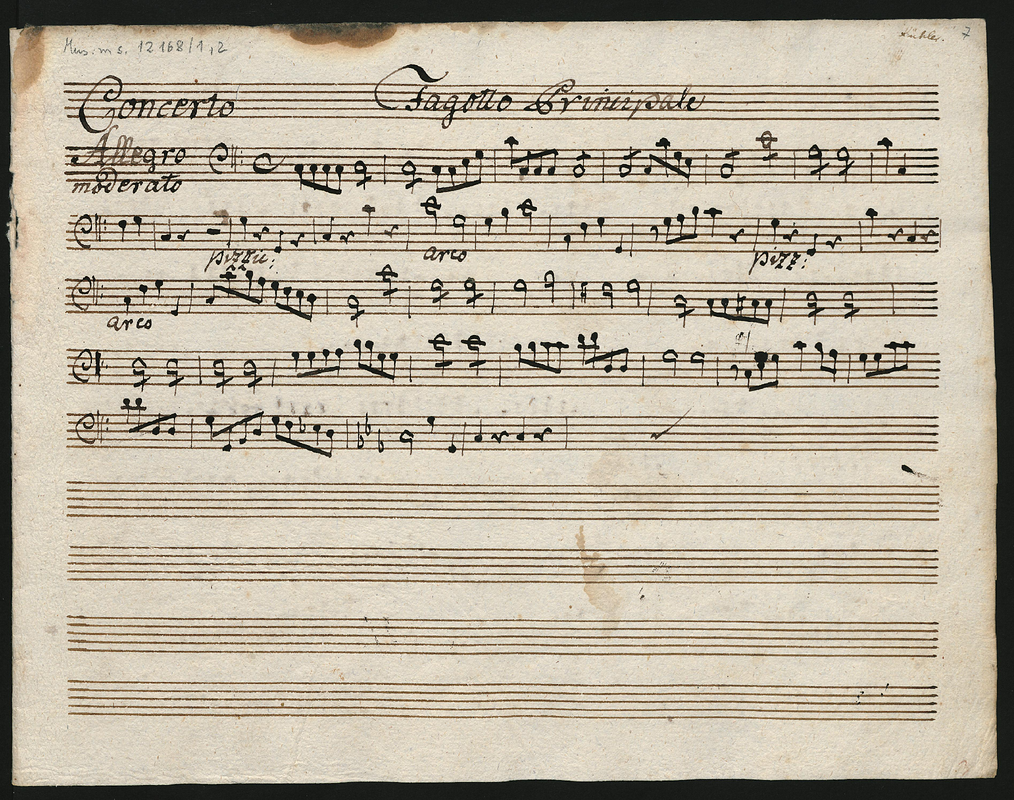 Mus. ms. 12168/1,2
Kühler. 7
Concerto Fagotto Principale
Allegro
moderato
pizzic:
arco
pizz:
arco